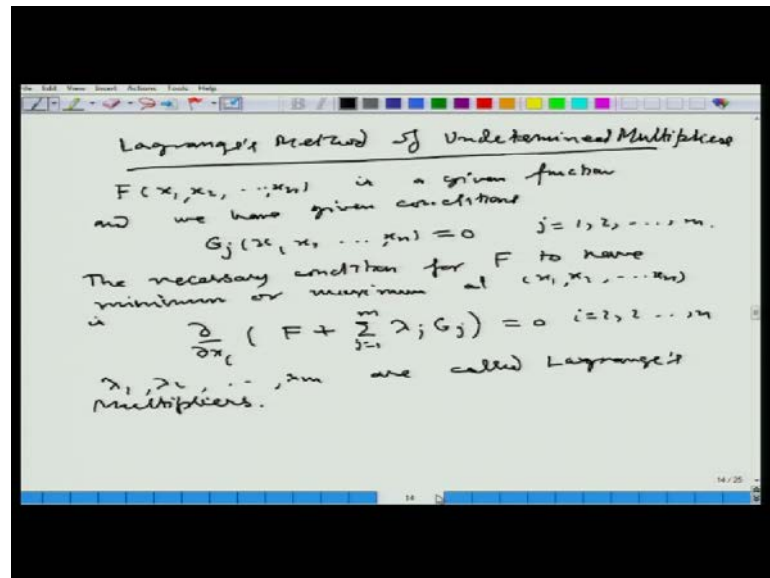 Edit View Insert Actions Tools Help
Lagrange's Method of Undetermined Multipliers
F(x₁, x₂, ..., xₙ) is a given function
and we have given conditions
Gⱼ(x₁, x₂ ..., xₙ) = 0 j = 1, 2, ..., m.
The necessary condition for F to have
minimum or maximum at (x₁, x₂, ... xₙ)
is ∂/∂xᵢ (F + Σⱼ₌₁ᵐ λⱼ Gⱼ) = 0 i = 1, 2 ..., n
λ₁, λ₂, ..., λₘ are called Lagrange's
Multipliers.
14 / 25
14